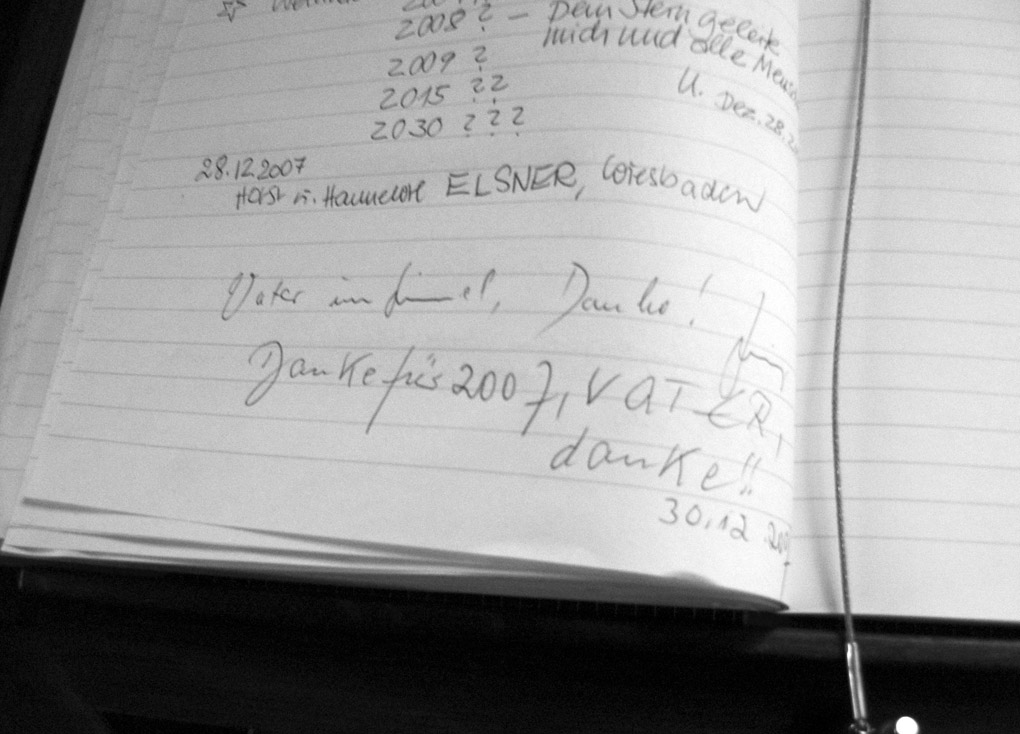 2008 ? – Dein Stern geleite
mich und alle
2009 ?
2015 ??
U. Dez. 28.
2030 ???
28.12.2007
Horst u. Hannelore ELSNER, Wiesbaden
Vater im Himmel, Danke!
Danke für 2007, VATER,
danke!!
30.12.